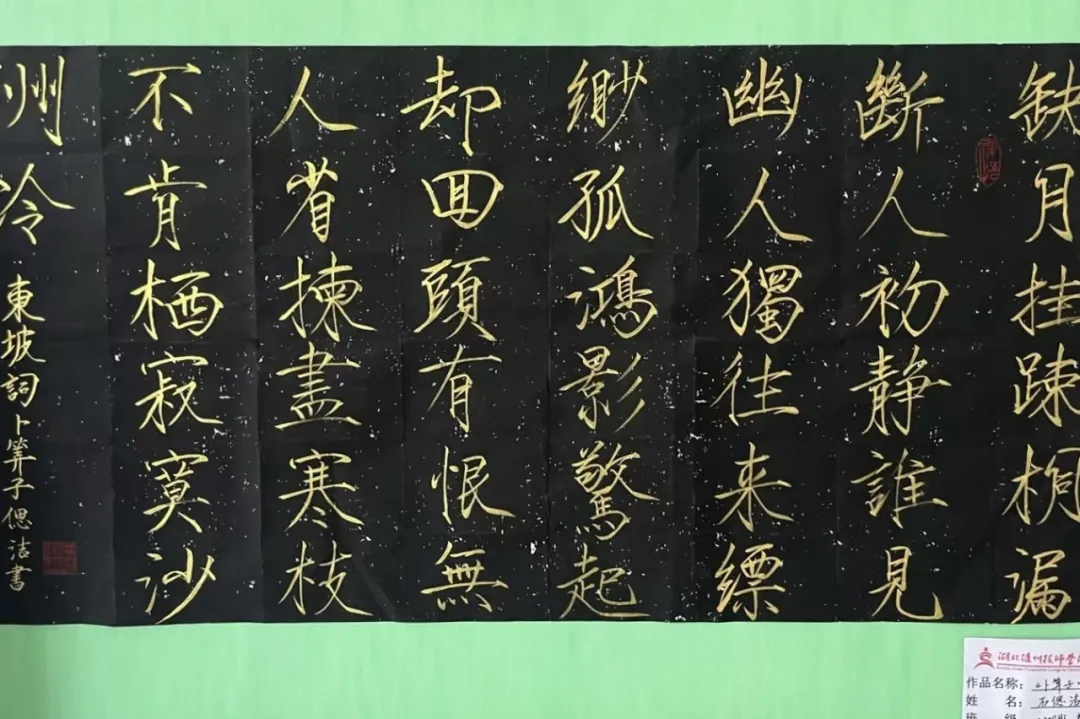 缺月挂疎桐漏
斷人初靜誰見
幽人獨往来縹
緲孤鴻影驚起
却回頭有恨無
人省揀盡寒枝
不肯栖寂寞沙
洲冷
東坡詞卜算子偲洁書
作品名称:卜算子
姓名:石偲洁
班级